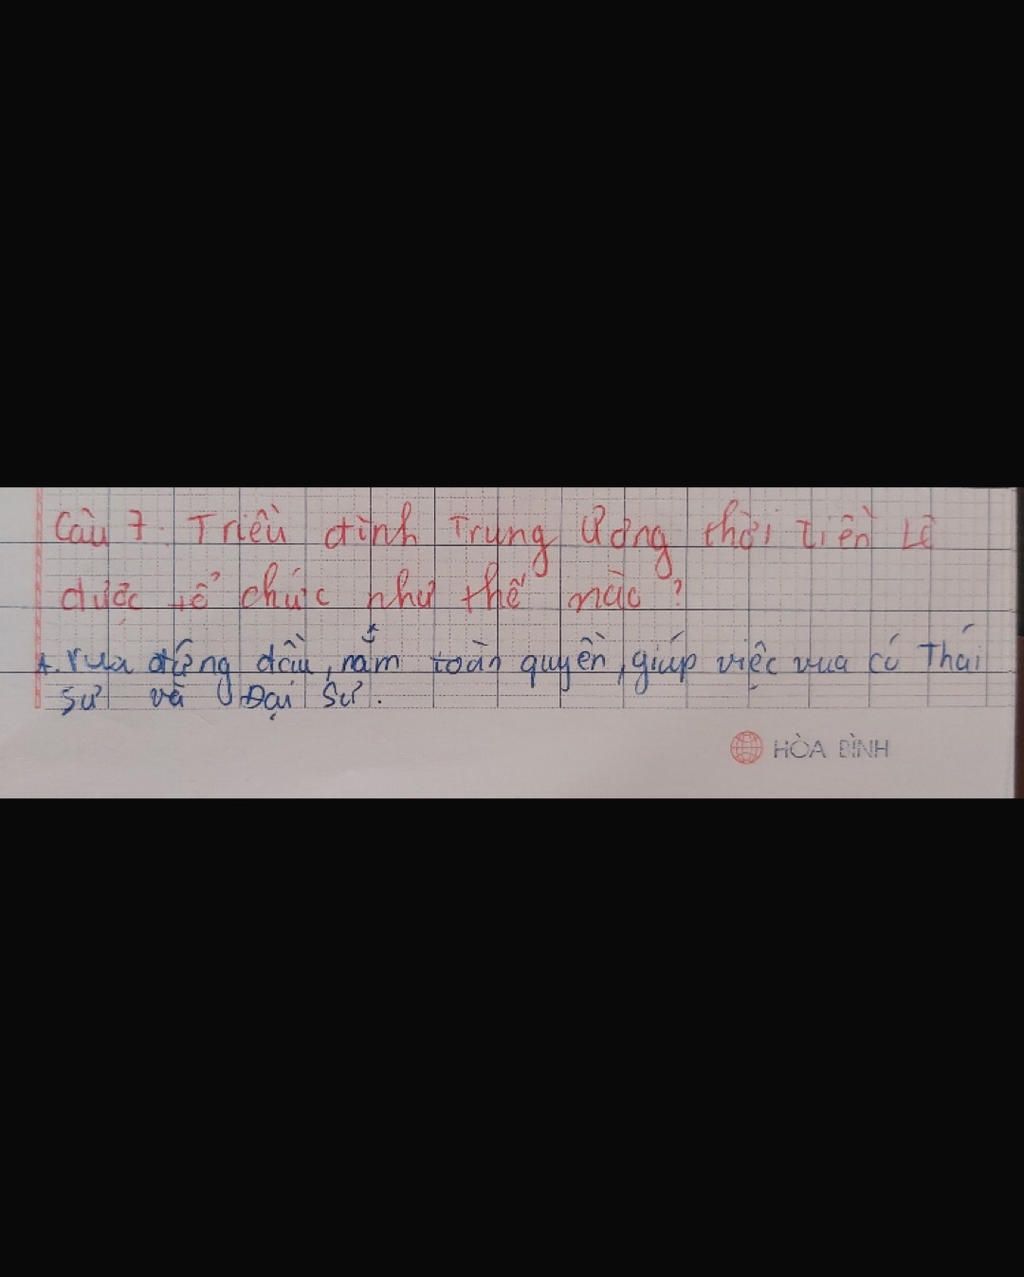 Câu 7: Triều đình Trung Ương thời tiền Lê
được tổ chức như thế nào?
A. Vua đứng đầu, nắm toàn quyền, giúp việc vua có Thái
Sư và Đại Sư.
HÒA BÌNH